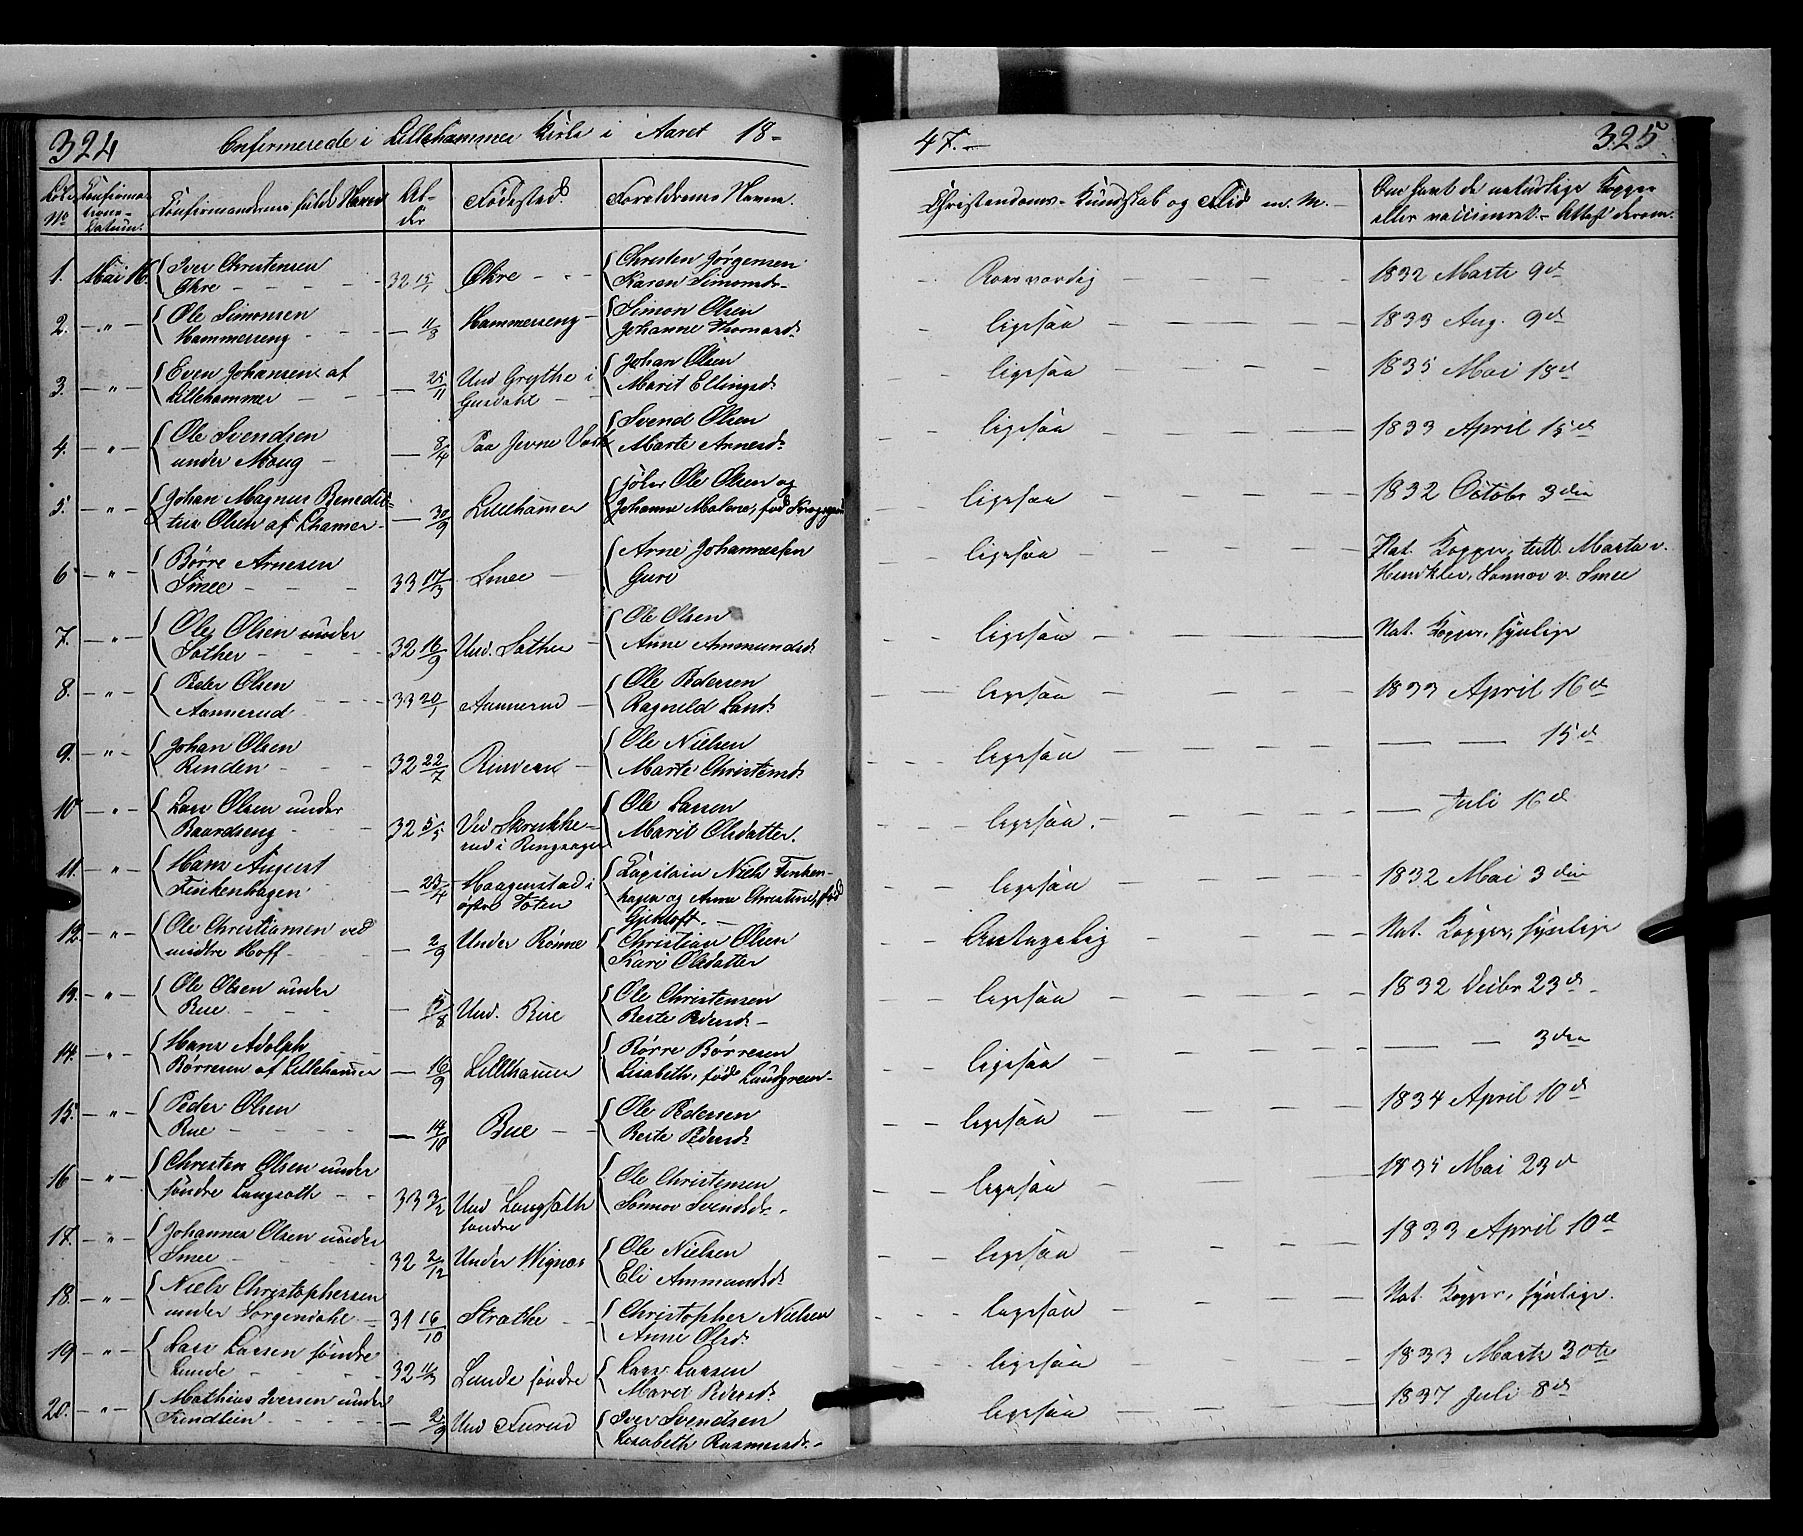 324
Confirmerede i Lillehammer Kirke i Aaret 18-
47.-
325
Løbe No
Confirmations-Datum.
Confirmandernes fulde Navne
Alder
Fødested
Forældrenes Navne.
Christendoms-Kundskab og Flid m. M.
Om havt de naturlige Kopper
eller vaccineret. Attest derom.
1. Mai 16. Iver Christensen
Okre
32 15/1 Okre
Christen Jørgensen
Karen Simonsd.
Roesværdig
1832 Marts 9d
2. Ole Simonsen
Hammerseng
11/8 Hammerseng
Simon Olsen
Johanne Thomasd.
ligesaa
1833 Aug. 9d
3. Even Johansen af
Lillehammer
25/11 Und Grythe i
Gusdahl
Johan Olsen
Marit Ellingsd.
ligesaa
1835 Mai 18d
4. Ole Svendsen
under Moug
8/4 Paa Jevne
Svend Olsen
Marte Arnesd.
ligesaa
1833 April 15d
5. Johan Magnus Benedic-
tus Olsen af Lhamer
30/9 Lillehamer
Ole Olsen og
Johanne Malene, fød
ligesaa
1832 Octobr 3die
6. Børre Arnesen
Smee
33 17/3 Smee
Arne Johannessen
Guri
ligesaa
Nat. Kopper, test. Marte v.
Sønnov v. Smee
7. Ole Olsen under
Sother
32 16/9 Und. Sother
Ole Olsen
Anne Ammundsd.
ligesaa
Nat. Kopper, synlige
8. Peder Olsen
Aannerud
33 20/1 Aannerud
Ole Pedersen
Ragnild Larsd.
ligesaa
1833 April 16d
9. Johan Olsen
Rinden
32 22/7
Ole Nielsen
Marte Christensd.
ligesaa
15d
10. Lars Olsen under
Baardseng
32 5/5 Ved Skrukke-
rud i Ringsager
Ole Larsen
Marit Olsdatter.
ligesaa.
Juli 16d
11. Hans August
Finkenhagen
25/4 Haagenstad i
østre Toten
Capitain Niels Finken-
hagen og Anne Christine, fød
Gjerløff.
ligesaa
1832 Mai 3die
12. Ole Christiansen ved
midtre Hoff
2/9 Under Rønne
Christian Olsen
Kari Olsdatter
Antagelig
Nat. Kopper, synlige
13. Ole Olsen under
Rue
Und. Rue
Ole Christensen
Berte Pedersd.
ligesaa
1832 Decbr 23d.
14. Hans Adolph
Børresen af Lillehamer
16/9 Lillehamer
Børre Børresen
Lisabeth, fød Lundgreen
ligesaa
3die
15. Peder Olsen
Rue
14/10 Rue
Ole Pedersen
Berte Pedersd.
ligesaa
1834 April 10d
16. Christen Olsen under
søndre Langsoth
33 3/2 Und Langsoth
søndre
Ole Christensen
Sønnov Svendsd.
ligesaa
1835 Mai 23d
17. Johannes Olsen under
Smee
32 2/12 Under Wignes
Ole Nielsen
Eli Ammundsd.
ligesaa
1833 April 10d
18. Niels Christophersen
under Jørgendahl
31 16/10 Strathe
Christopher Nielsen
Anne Olsd.
ligesaa
Nat. Kopper, synlige.
19. Lars Larsen søndre
Lunde
32 Lunde søndre
Lars Larsen
Marit Pedersd.
ligesaa
1833 Marts 30te
20. Mathias Iversen under
Findlien
2/9 Und Furud
Iver Svendsen
Lisabeth Rasmusd.
ligesaa
1837 Juli 8d